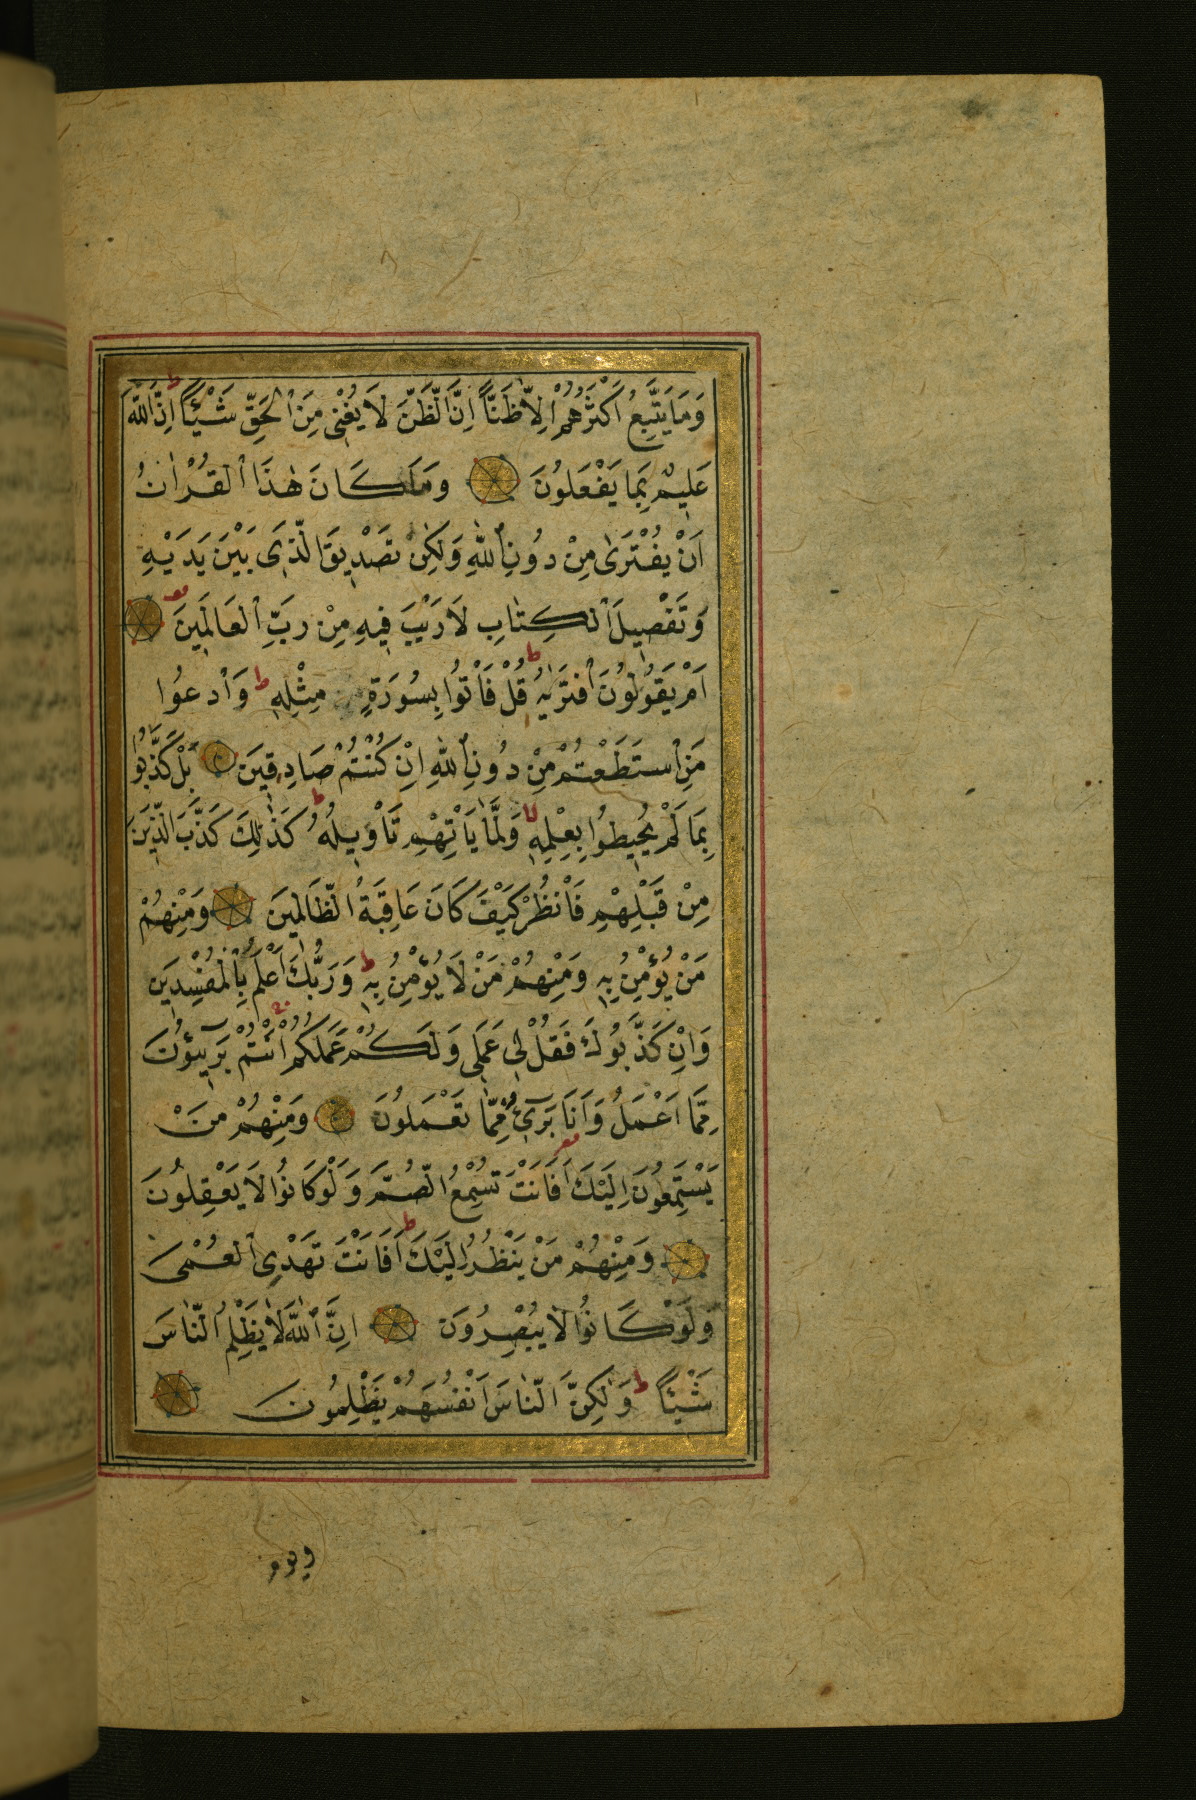 وَمَا يَتَّبِعُ اَكْثَرُهُمْ اِلَّا ظَنًّا اِنَّ الظَّنَّ لَا يُغْنِى مِنَ الْحَقِّ شَيْئًا ط اِنَّ اللّٰهَ
عَلِيمٌ بِمَا يَفْعَلُونَ وَمَا كَانَ هٰذَا الْقُرْاٰنُ
اَنْ يُفْتَرٰى مِنْ دُونِ اللّٰهِ وَلٰكِنْ تَصْدِيقَ الَّذِى بَيْنَ يَدَيْهِ
وَتَفْصِيلَ الْكِتَابِ لَا رَيْبَ فِيهِ مِنْ رَبِّ الْعَالَمِينَ
اَمْ يَقُولُونَ افْتَرٰيهُ ط قُلْ فَأْتُوا بِسُورَةٍ مِثْلِهِ ط وَادْعُوا
مَنِ اسْتَطَعْتُمْ مِنْ دُونِ اللّٰهِ اِنْ كُنْتُمْ صَادِقِينَ بَلْ كَذَّبُوا
بِمَا لَمْ يُحِيطُوا بِعِلْمِهِ لا وَلَمَّا يَأْتِهِمْ تَأْوِيلُهُ ط كَذٰلِكَ كَذَّبَ الَّذِينَ
مِنْ قَبْلِهِمْ فَانْظُرْ كَيْفَ كَانَ عَاقِبَةُ الظَّالِمِينَ وَمِنْهُمْ
مَنْ يُؤْمِنُ بِهِ وَمِنْهُمْ مَنْ لَا يُؤْمِنُ بِهِ ط وَرَبُّكَ اَعْلَمُ بِالْمُفْسِدِينَ
وَاِنْ كَذَّبُوكَ فَقُلْ لِى عَمَلِى وَلَكُمْ عَمَلُكُمْ اَنْتُمْ بَرِيۤـُٔونَ
مِمَّا اَعْمَلُ وَاَنَا بَرِىۤءٌ مِمَّا تَعْمَلُونَ وَمِنْهُمْ مَنْ
يَسْتَمِعُونَ اِلَيْكَ اَفَاَنْتَ تُسْمِعُ الصُّمَّ وَلَوْ كَانُوا لَا يَعْقِلُونَ
وَمِنْهُمْ مَنْ يَنْظُرُ اِلَيْكَ ط اَفَاَنْتَ تَهْدِى الْعُمْىَ
وَلَوْ كَانُوا لَا يُبْصِرُونَ اِنَّ اللّٰهَ لَا يَظْلِمُ النَّاسَ
شَيْئًا ط وَلٰكِنَّ النَّاسَ اَنْفُسَهُمْ يَظْلِمُونَ
ويوم